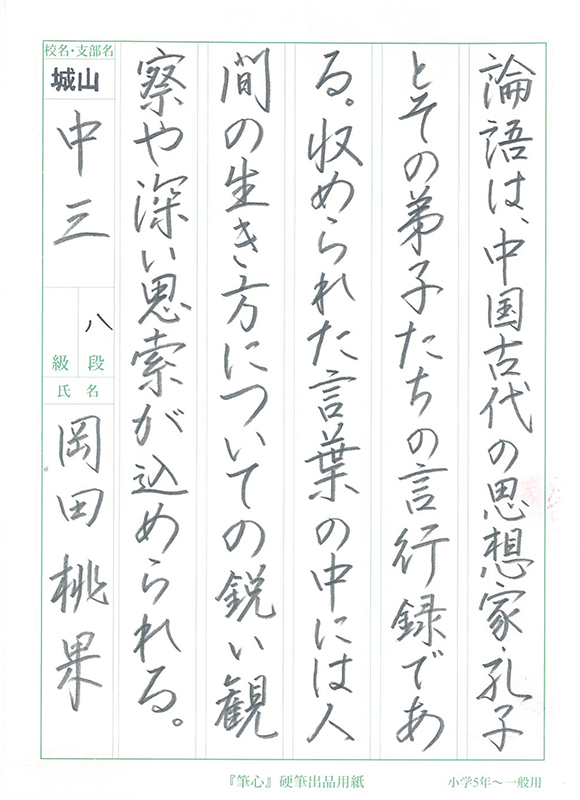 論語は、中国古代の思想家・孔子
とその弟子たちの言行録であ
る。収められた言葉の中には人
間の生き方についての鋭い観
察や深い思索が込められる。
校名・支部名
城山
中三
八
段
級
氏名
岡田桃果
『筆心』硬筆出品用紙
小学5年〜一般用